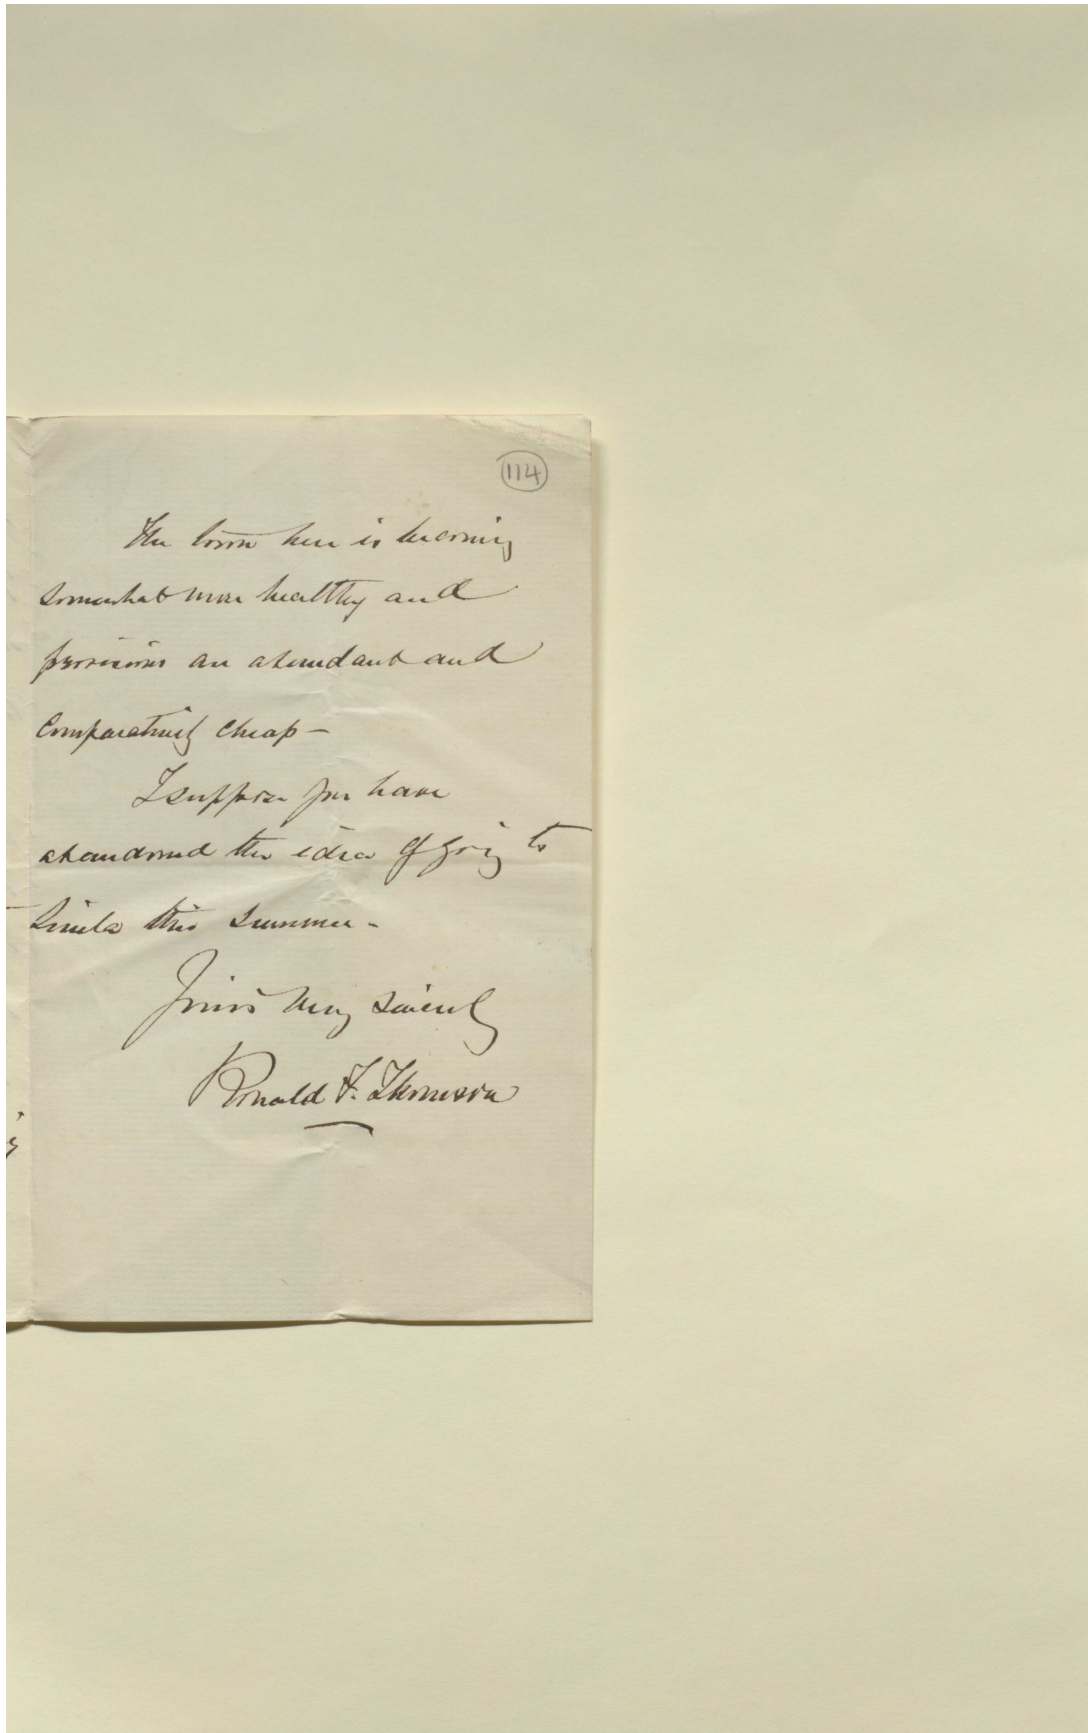 114
The town here is becoming
somewhat more healthy and
provisions are abundant and
comparatively cheap –
I suppose you have
abandoned the idea of going to
Simla this summer –
Yours very sincerely
Ronald F. Thomson